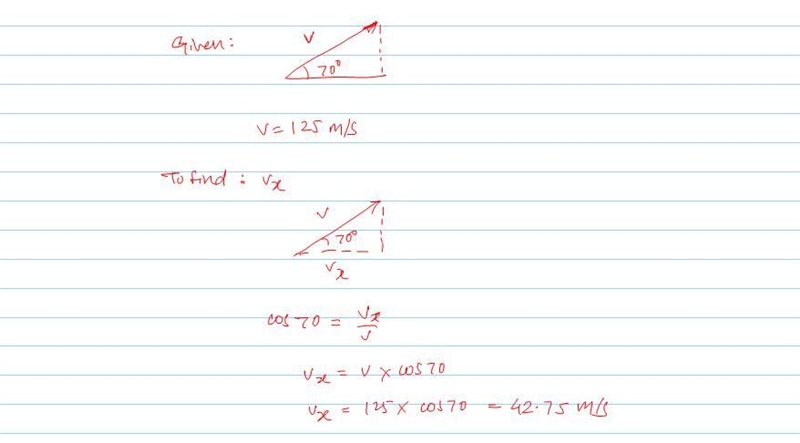 Given: V
70°
V = 125 m/s
To find: Vx
V
70°
Vx
cos 70 = Vx/V
Vx = V × cos 70
Vx = 125 × cos 70 = 42.75 m/s